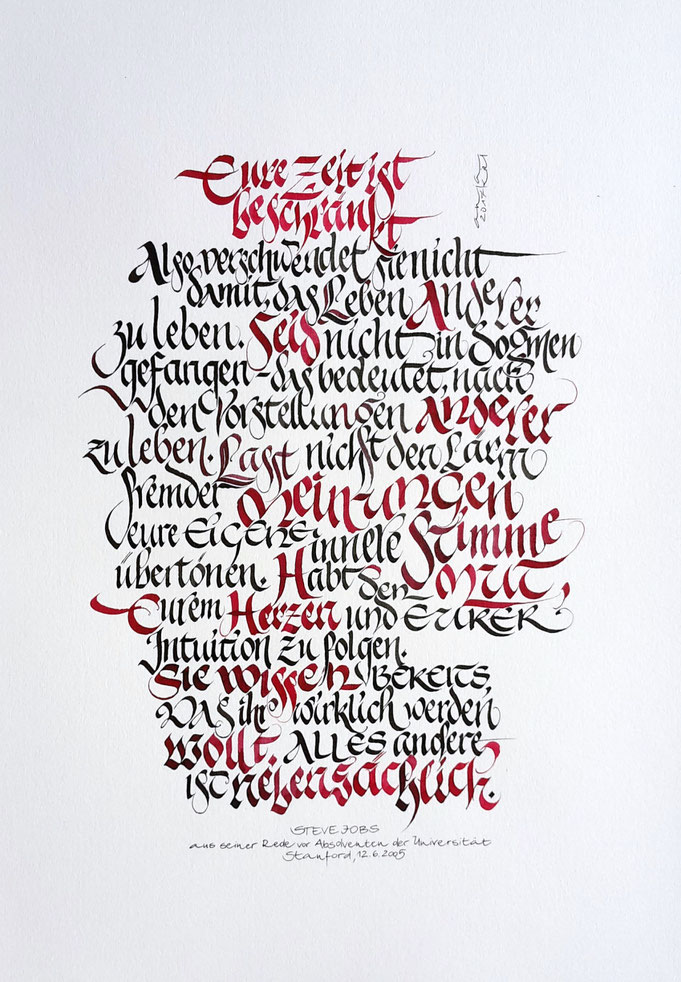 Eure Zeit ist
beschränkt
Also verschwendet sie nicht
damit, das Leben Anderer
zu leben. Seid nicht in Dogmen
gefangen - das bedeutet, nach
den Vorstellungen Anderer
zu leben. Lasst nicht den Lärm
fremder Meinungen
eure EIGENE innere Stimme
übertönen. Habt den MUT,
Eurem Herzen und EURER
Intuition zu folgen.
Sie wissen BEREITS,
WAS ihr wirklich werden
wollt. ALLES andere
ist nebensächlich.
STEVE JOBS
aus seiner Rede vor Absolventen der Universität
Stanford, 12.6.2005
2017